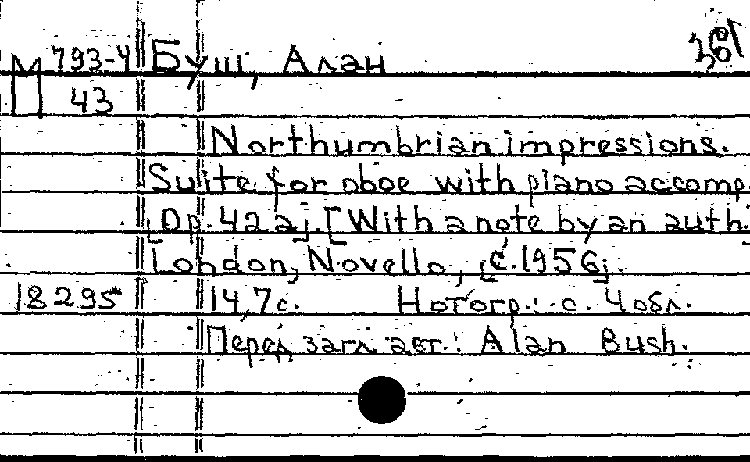 М 793-4 Буш, Алан
43
Northumbrian impressions.
Suite for oboe with piano accomp
[Op. 42a]. [With a note by an auth.
London, Novello, [c. 1956].
18295* 14,7с. Нотогр.: с. 4 обл.
Перед загл. авт.: Alan Bush.